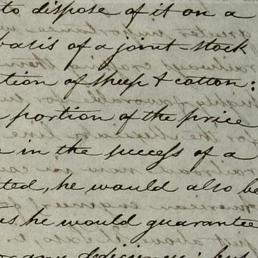 to dispose of it on a
basis of a joint-stock
tion of sheep & cotton:
portion of the price
in the success of a
ted, he would also be
us he would guarantee
any deficiency; but